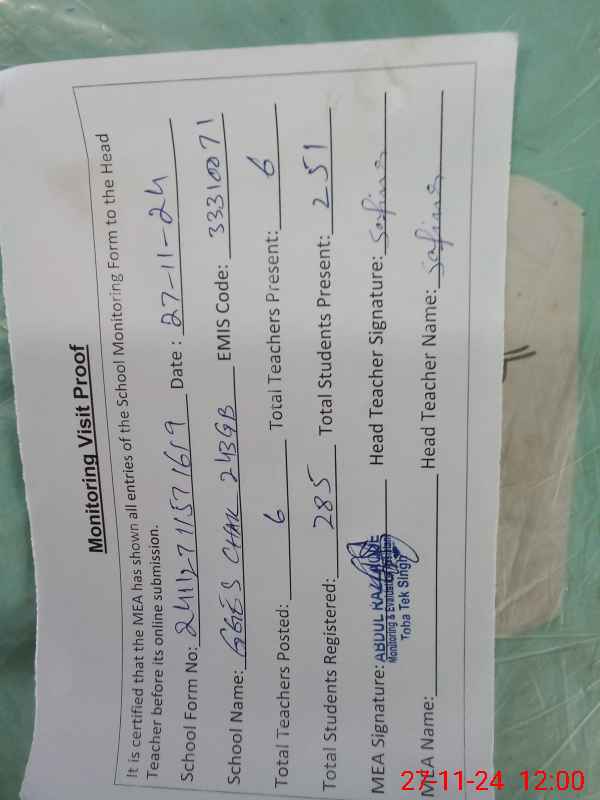 Monitoring Visit Proof
It is certified that the MEA has shown all entries of the School Monitoring Form to the Head
Teacher before its online submission.
School Form No: 24112711571619 Date : 27-11-24
School Name: GGES CHAK 243GB EMIS Code: 33310071
Total Teachers Posted: 6 Total Teachers Present: 6
Total Students Registered: 285 Total Students Present: 251
MEA Signature: ABDUL Head Teacher Signature: Safina
Monitoring & Evaluation
Toba Tek Singh
MEA Name: Head Teacher Name: Safina
27-11-24 12:00